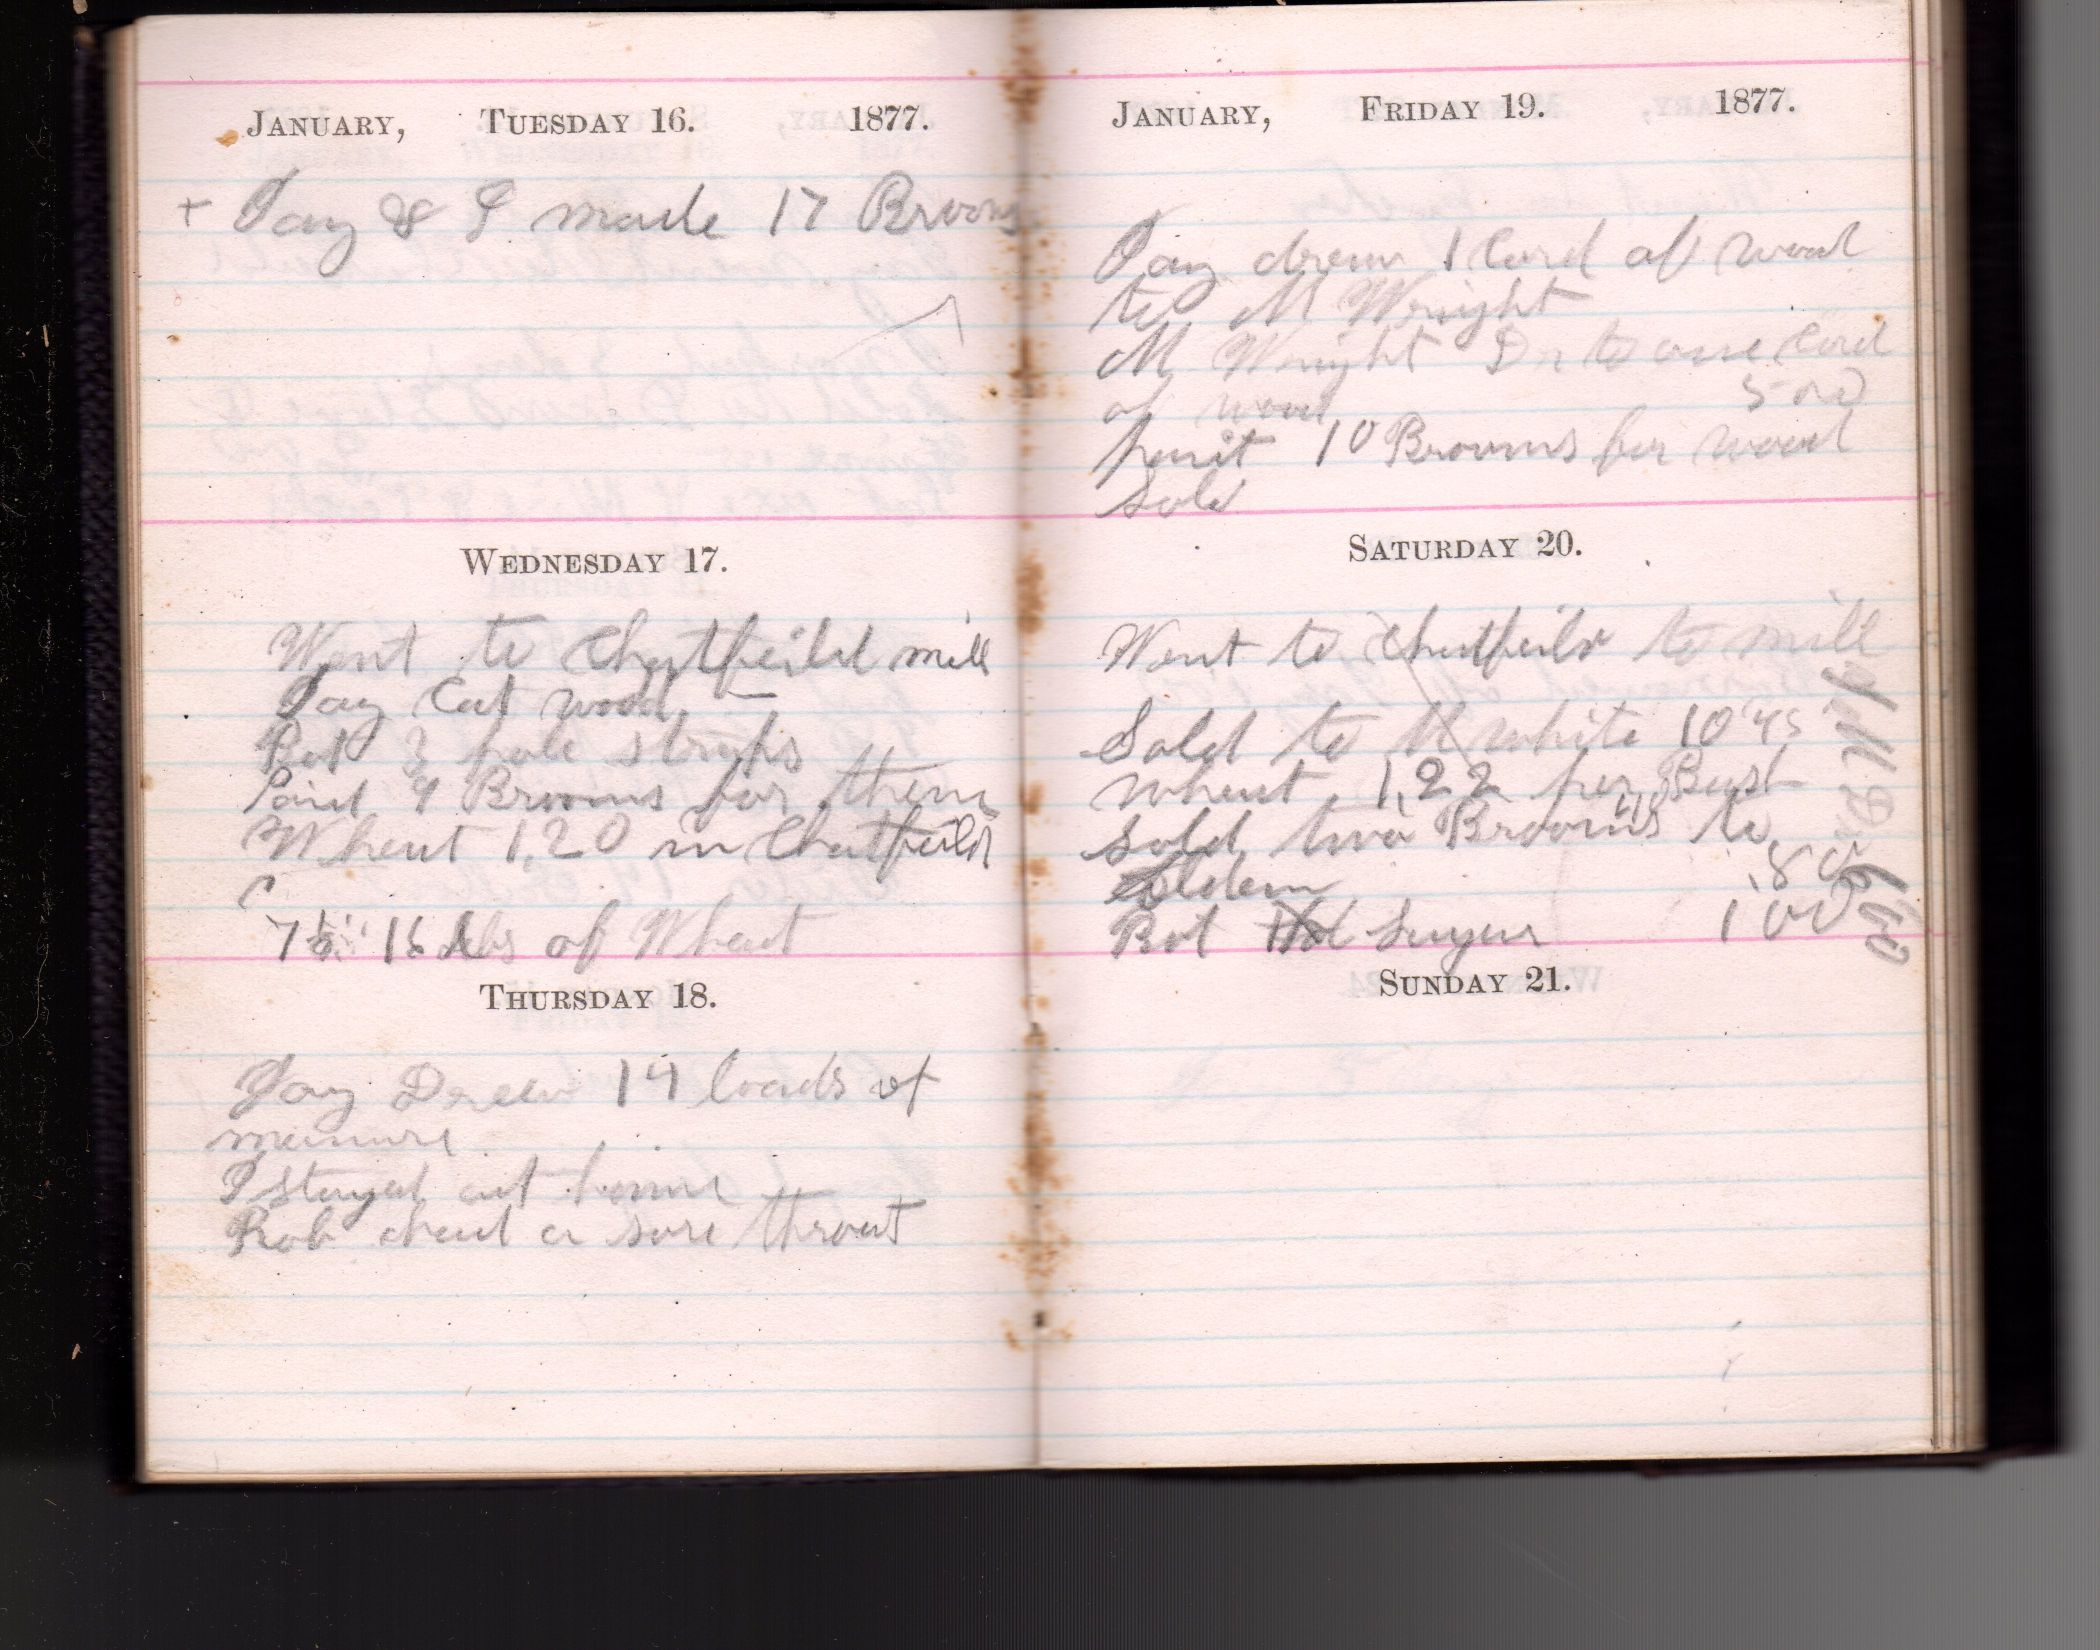 JANUARY, TUESDAY 16. 1877.
+ Jay & I made 17 Brooms
WEDNESDAY 17.
Went to Chatfeild mill
Jay Cut wood
Bot 3 pole straps
Paid 4 Brooms for them
Wheat 1,20 in Chatfeild
16 lbs of Wheat
THURSDAY 18.
Jay Drew 14 loads of
manure
I stayed at home
Rob ahad a sore throat
JANUARY, FRIDAY 19. 1877.
Jay drew 1 Cord of wood
to M Wright
M Wright Dr to one Cord
of wood 5 00
10 Brooms for wood
Sold
SATURDAY 20.
Went to Chatfeild to mill
Sold to M white 10 45
Wheat 1,22 per Bush
sold two Brooms to
.80
Bot Sugar 1 00
SUNDAY 21.